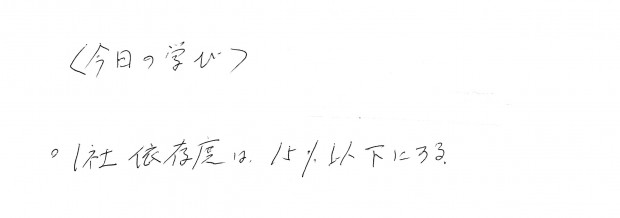 〈今日の学び〉
○1社依存度は、15%以下にする。